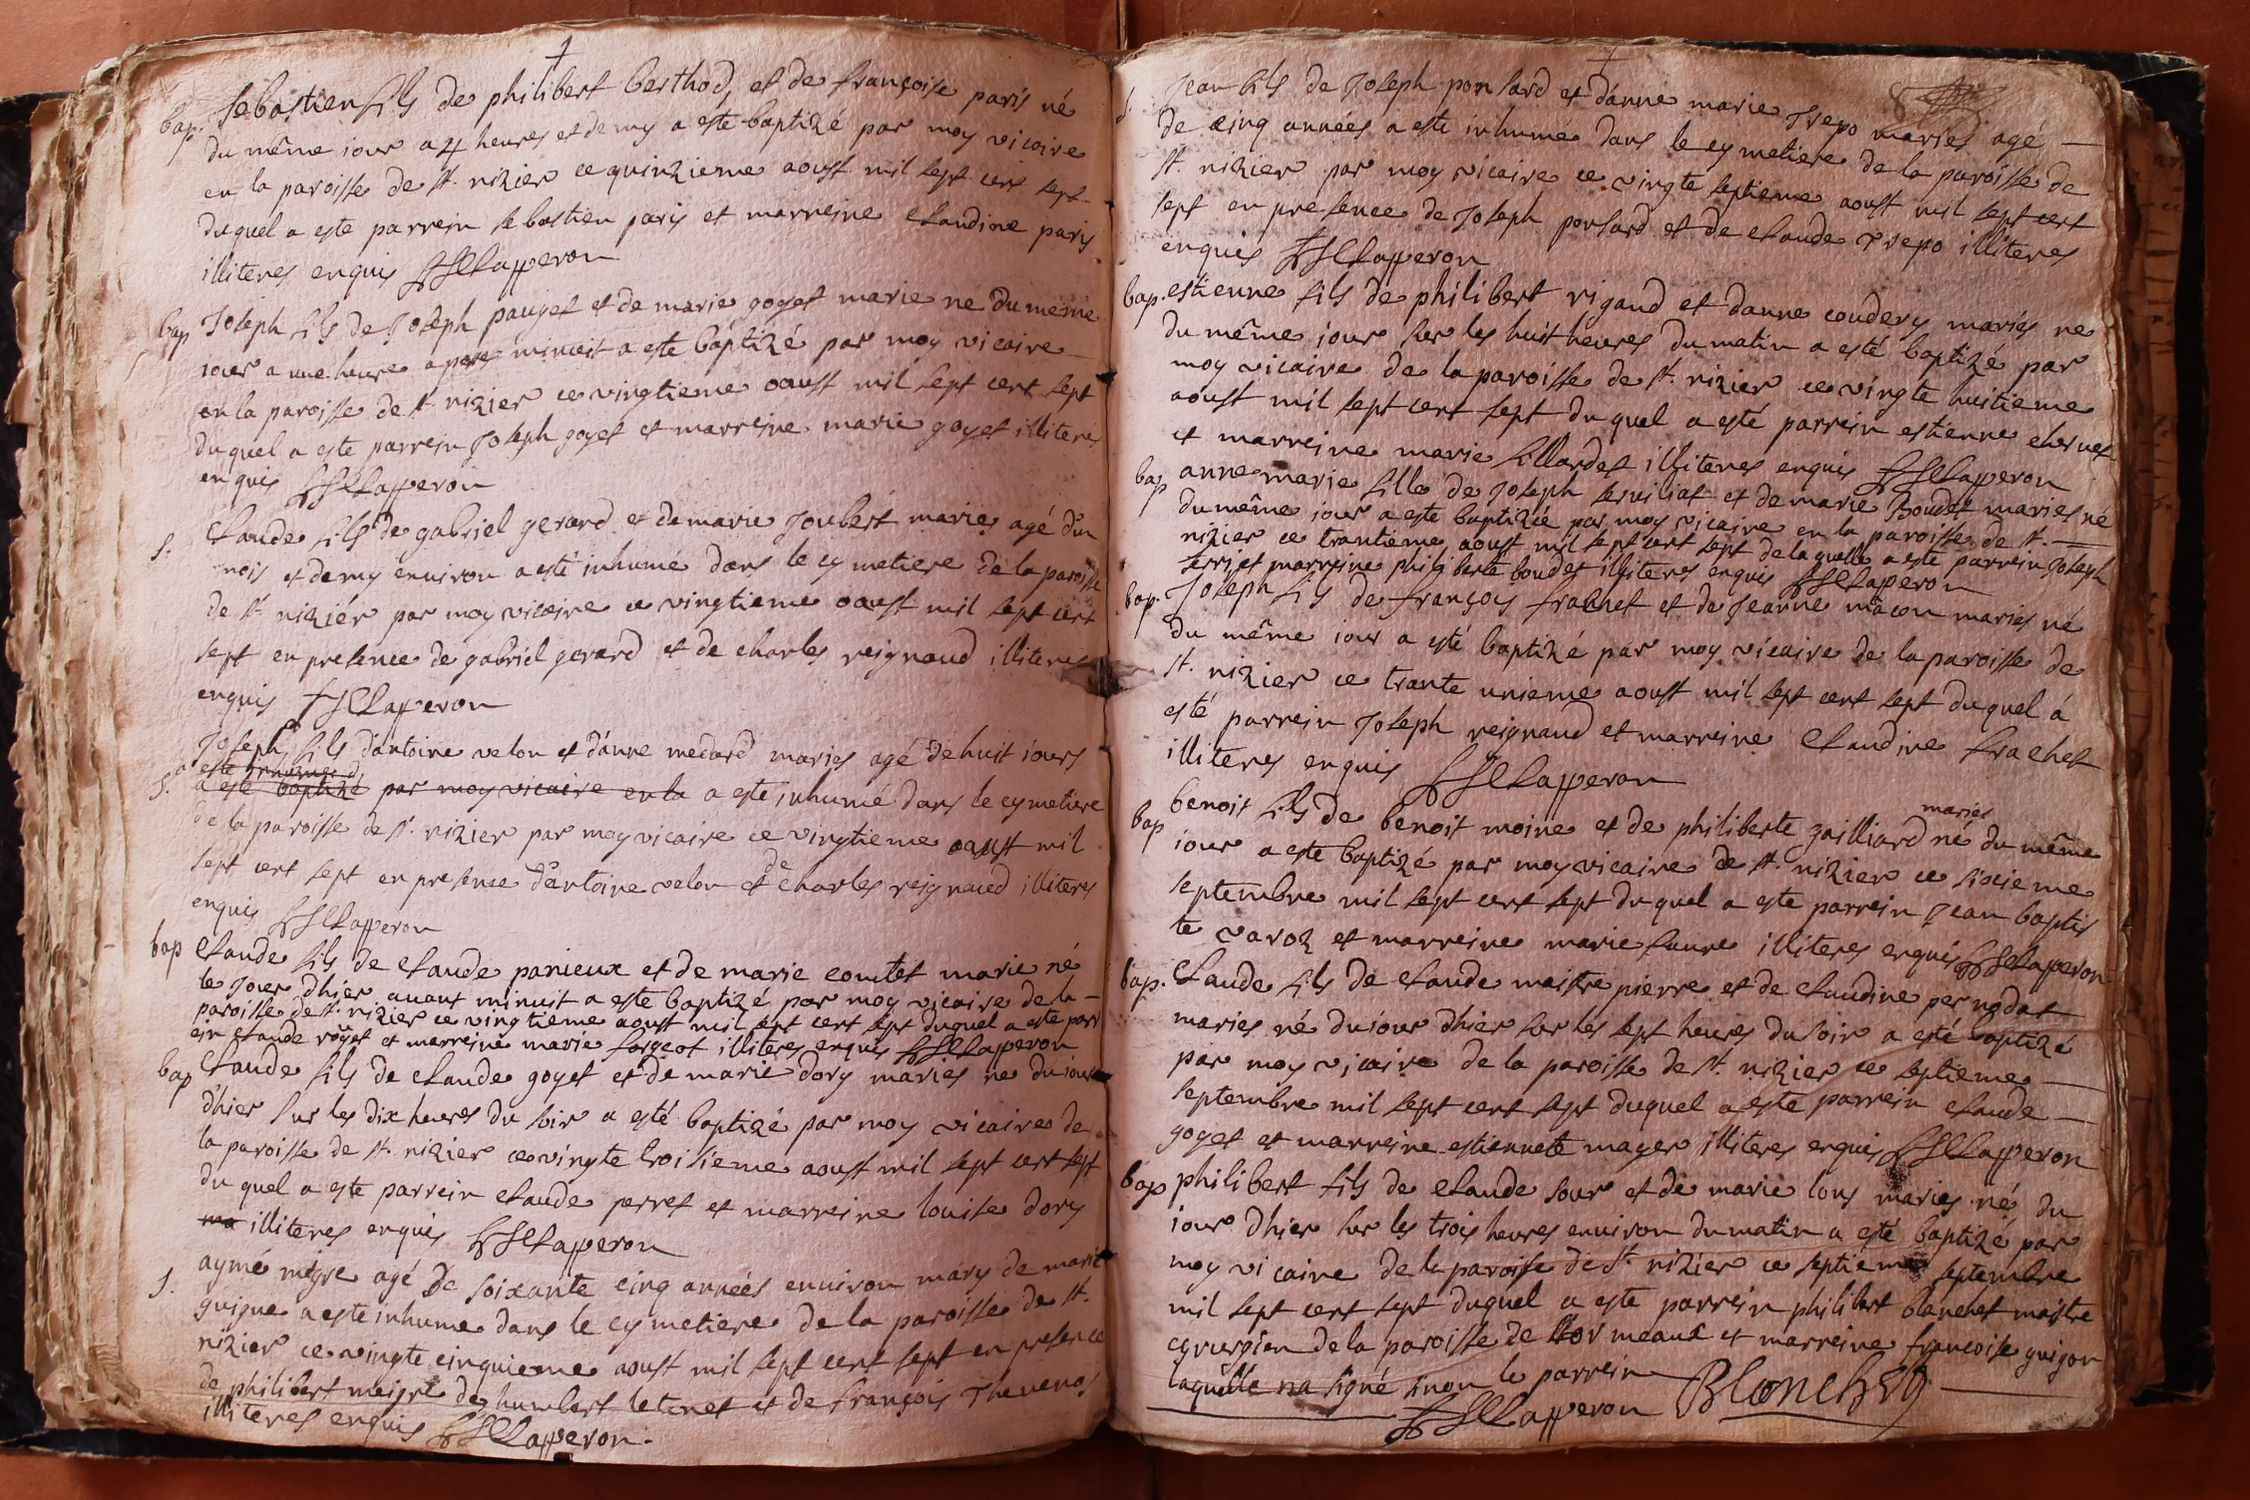 bap. sebastien fils de philibert berthod, et de françoise paris né
du même iour a 4 heures et demy a esté baptizé par moy vicaire
en la paroisse de st. nizier ce quinzieme aoust mil sept cent sept
duquel a este parrein sebastien paris et marreine claudine paris
illiteres enquis Clapperon
bap Joseph fils de Joseph pauget et de marie goyet marie né du méme
iour a une heure apres minuit a esté baptizé par moy vicaire
en la paroisse de st. nizier ce vingtieme aoust mil sept cent sept
duquel a este parrein Joseph goyet et marreine marie goyet illiteres
enquis Clapperon
s. Claude fils de gabriel gerard et de marie Joubert maries agé d'un
mois et demy environ a esté inhumé dans le cymetiere de la paroisse
de st. nizier par moy vicaire ce vingtieme aoust mil sept cent
sept en presence de gabriel gerard et de charles reignaud illiteres
enquis Clapperon
Joseph fils d'antoine velon et d'anne medard maries agé de huit iours
s. a esté baptizé par moy vicaire en la a este inhumé dans le cymetiere
de la paroisse de st. nizier par moy vicaire ce vingtieme aoust mil
sept cent sept en presence d'antoine velon et de charles reignaud illiteres
enquis Clapperon
bap Claude fils de claude panieux et de marie comtet marie né
le Jour d'hier avant minuit a este baptizé par moy vicaire de la
paroisse de st. nizier ce vingtieme aoust mil sept cent sept duquel a este parr
ein claude roget et marreine marie forgeot illiteres enquis Clapperon
bap Claude fils de claude goyet et de marie dory maries né du iour
d'hier sur les dix heures du soir a esté baptizé par moy vicaire de
la paroisse de st. nizier ce vingte troisieme aoust mil sept cent sept
du quel a este parrein claude perret et marreine louise dory
ma illiteres enquis Clapperon
s. aymé migre agé de soixante cinq années environ mary de marie
guigue a este inhumé dans le cymetiere de la paroisse de st.
nizier ce vingte cinquieme aoust mil sept cent sept en presence
de philibert meigre de humbert letenet et de françois Thevenot
illiteres enquis Clapperon.
s. Jean fils de Joseph ponsard et d'anne marie Trepo maries agé
de cinq années a esté inhumé dans le cymetiere de la paroisse de
st. nizier par moy vicaire ce vingte septieme aoust mil sept cent
sept en presence de Joseph ponsard et de claude Trepo illiteres
enquis Clapperon
bap. estienne fils de philibert rigaud et danne coudery mariés né
du même iour sur les huit heures du matin a esté baptizé par
moy vicaire de la paroisse de st. nizier ce vingte huitieme
aoust mil sept cent sept du quel a esté parrein estienne chernet
et marreine marie fillardet illiteres enquis Clapperon
bap anne marie fille de Joseph serviliat et de marie Boudet maries né
du même iour a este baptizée par moy vicaire en la paroisse de st.
nizier ce trantieme aoust mil sept cent sept de laquelle a este parrein Joseph
terrjet marreine philiberte boudet illiteres enquis Clapperon
bap. Joseph fils de françois frachet et de Jeanne mâcon maries né
du même iour a esté baptizé par moy vicaire de la paroisse de
st. nizier ce trante unieme aoust mil sept cent sept duquel á
esté parrein Joseph reignaud et marreine Claudine frachet
illiteres enquis Clapperon
bap benoit fils de benoit moine et de philiberte gailliard maries né du même
iour a este baptizé par moy vicaire de st. nizier ce sixieme
septembre mil sept cent sept du quel a este parrein Jean baptis
te varoz et marreine marie faure illiteres enquis Clapperon
bap. Claude fils de claude maistre pierre et de claudine pernodat
maries né du iour d'hier sur les sept heures du soir a esté baptizé
par moy vicaire de la paroisse de st. nizier ce septieme
septembre mil sept cent sept duquel a este parrein claude
goyet et marreine estiennete mager illiteres enquis Clapperon
bap philibert fils de claude sour et de marie lons maries né du
iour d'hier sur les trois heures environ du matin a esté baptizé par
moy vicaire de la paroisse de st. nizier ce septieme septembre
mil sept cent sept duquel a este parrein philibert blanchet maistre
cyrurgien de la paroisse de meaux et marreine francoise guigon
laquelle na signé sinon le parrein
Clapperon Blanchet